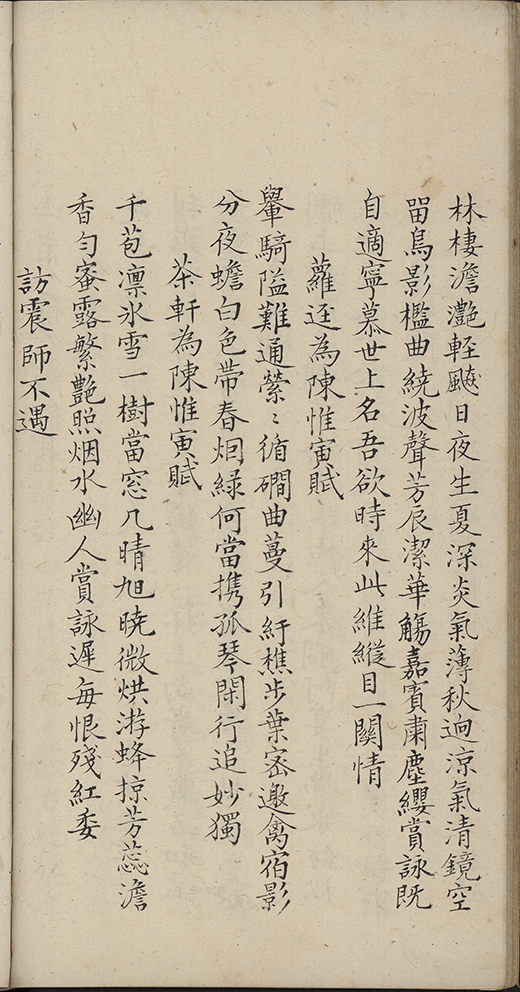 林棲澹灔輕飈日夜生夏深炎氣薄秋迥涼氣清鏡空
留鳥影檻曲繞波聲芳辰潔華觴嘉賓肅塵纓賞詠既
自適寧慕世上名吾欲時來此維縱目一關情
蘿逕為陳惟寅賦
轝騎隘難通縈〻循磵曲蔓引紆樵步葉密邀禽宿影
分夜蟾白色帶春烟緑何當携孤琴閑行追妙獨
茶軒為陳惟寅賦
千苞凛氷雪一樹當窓几晴旭暁微烘游蜂掠芳蕊澹
香匀蜜露繁艶照烟水幽人賞詠遲每恨殘紅委
訪震師不遇